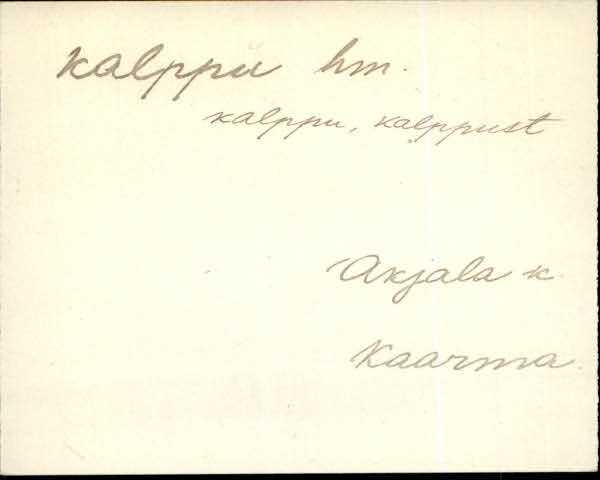 Kalppu hm.
kalppu, kalppust
Anjala k.
Kaarma.